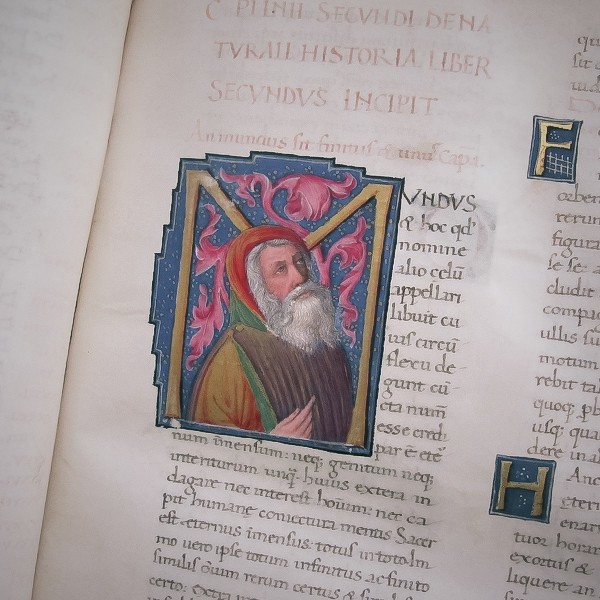 C PLINII SECVNDI DE NA
TVRALI HISTORIA LIBER
SECVNDVS INCIPIT
An mundus sit finitus & unus Capᵐ.
MVNDVS
& hoc qd'
nomine
alio celū
appellari
libuit cu
ius circū
flexu de
gunt cū
cta numē
esse credi
par ē eté
num īmensum: neq; genitum neq;
interiturum unq̃. huius extera in
dagare nec interest hoīum: nec ca
pit humanę coniectura mentis Sacer
est· eternus īmensus: totus in toto. Im
mo uero ipse totum infinitus ac finito
similis oīum rerum certus & similis
certo: extra intra
F
orbem
rerum
figura
se se: a
cludit
compa
ullis su
motum
rebit ta
quoq; pb
usq; qua
dere in
H
Anc
Etern
enar
tuor horar
exortus &
liquere an